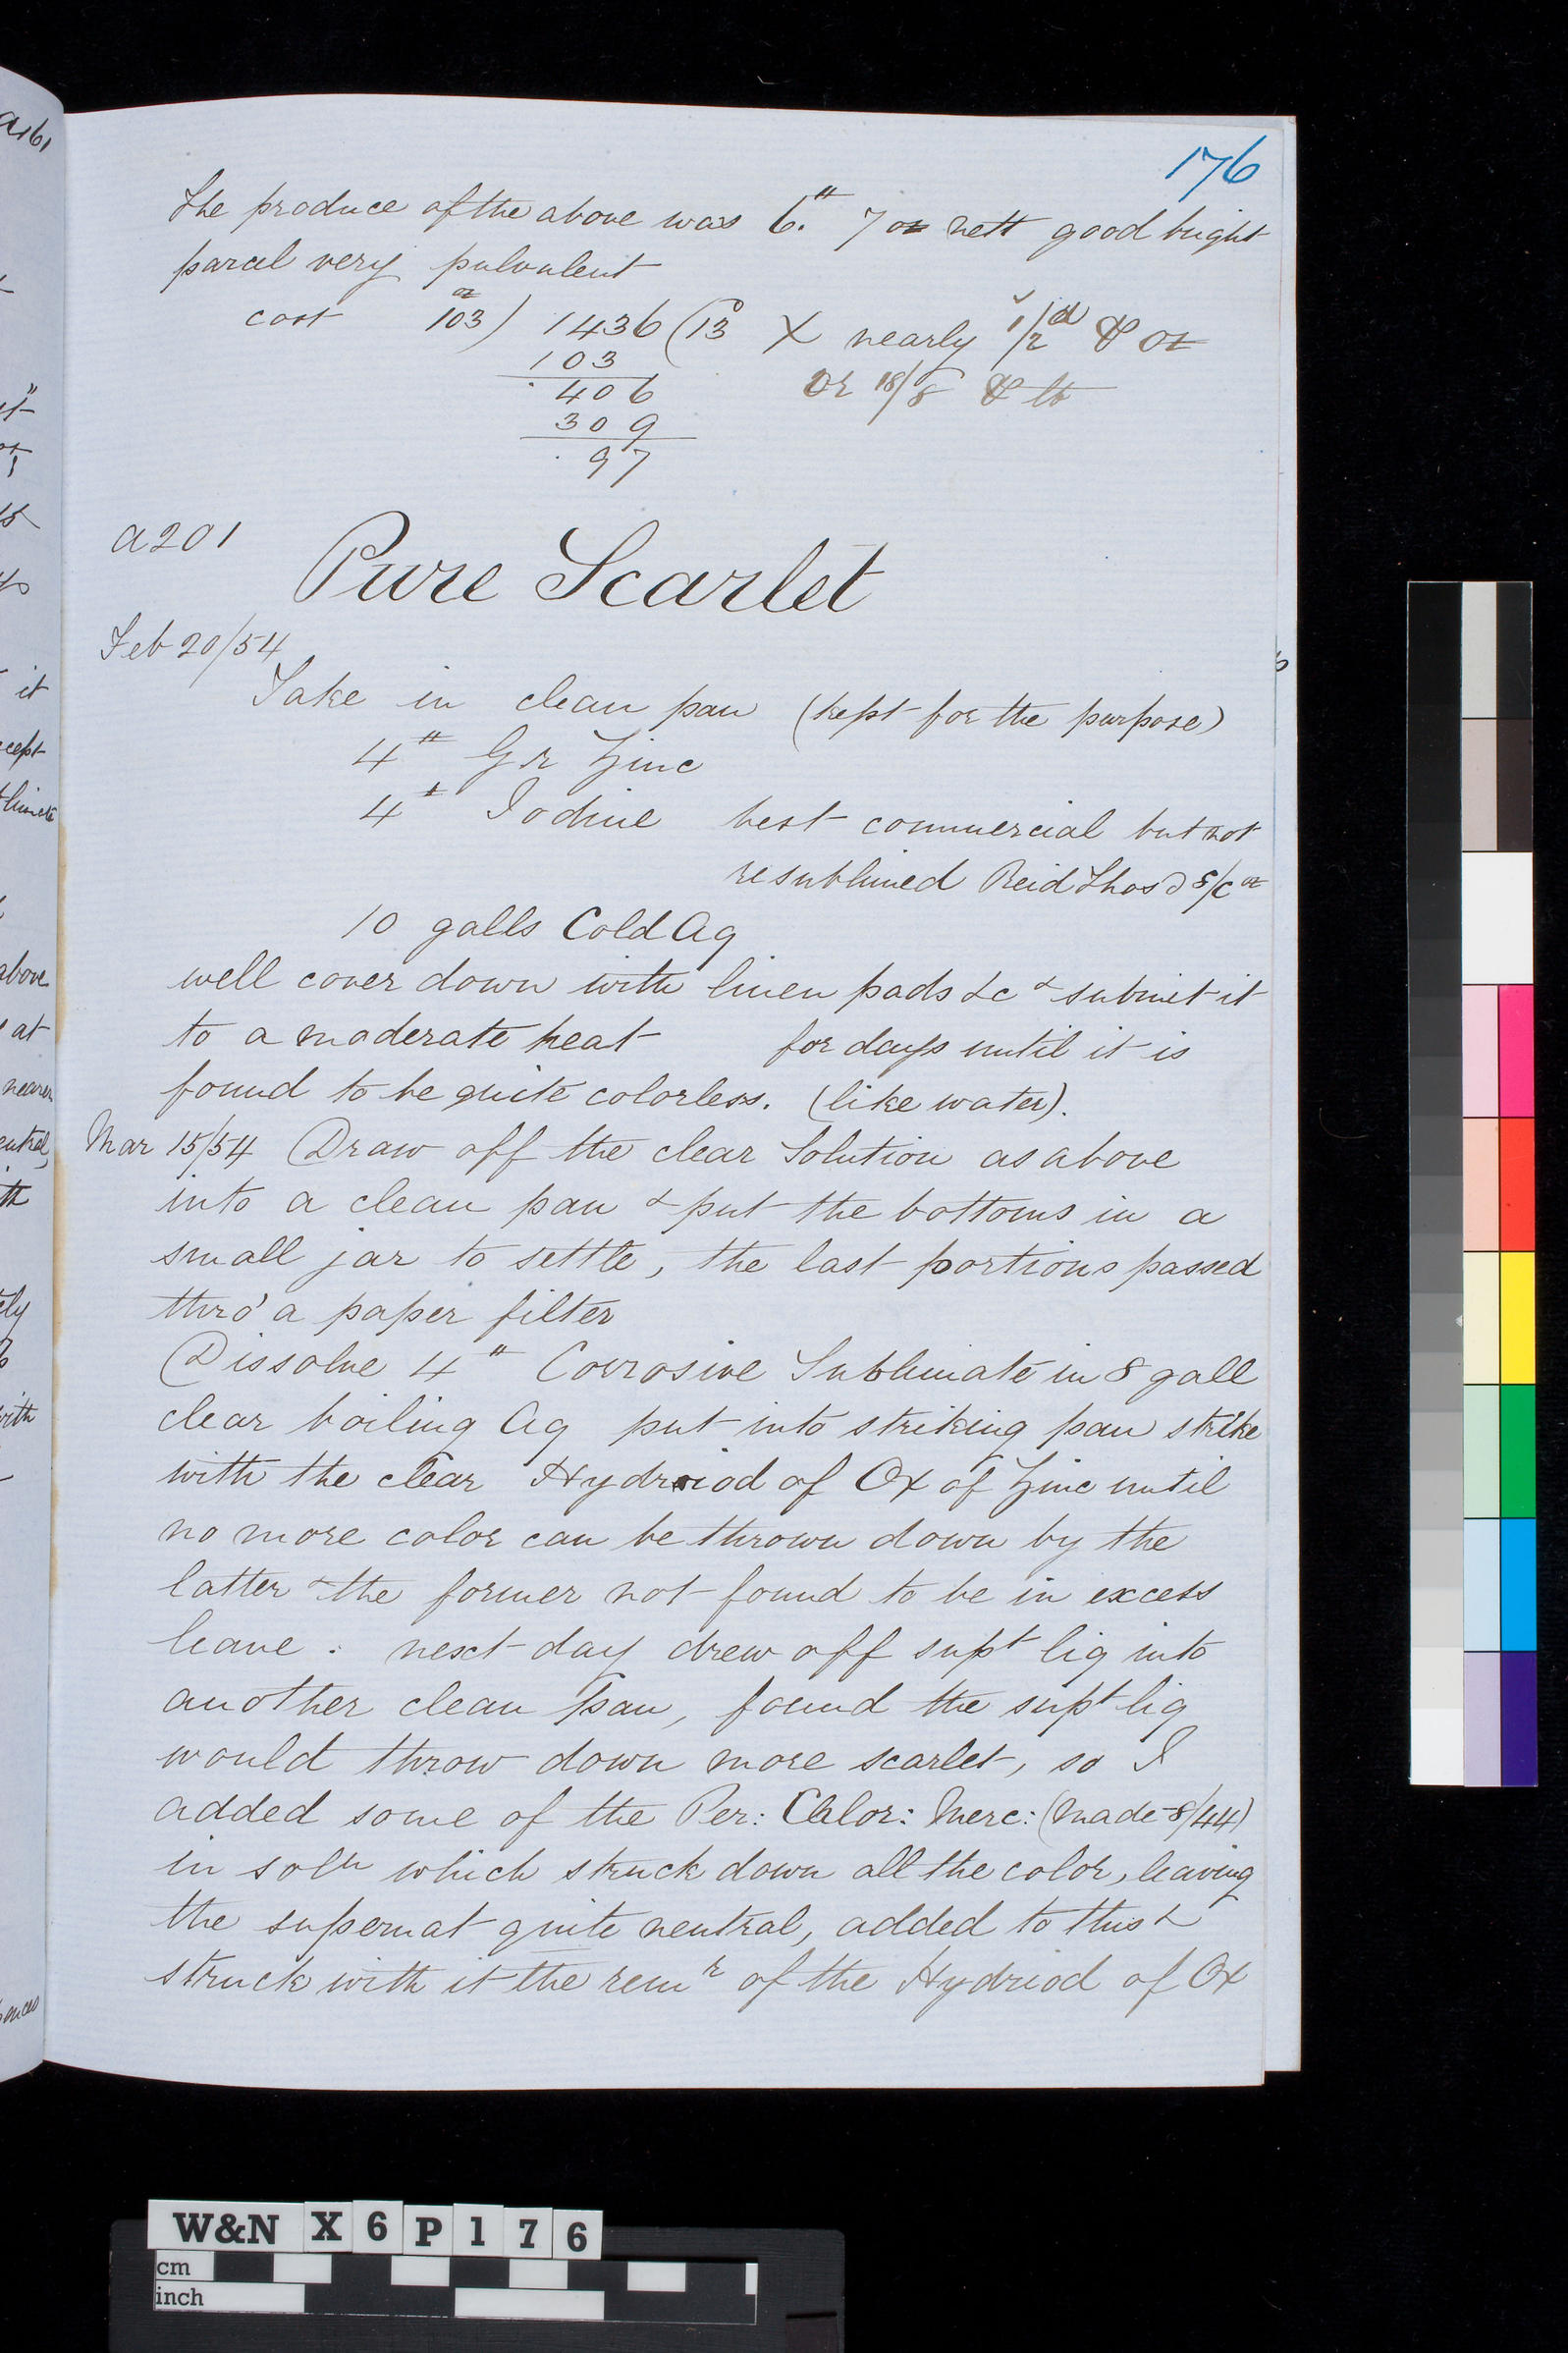 176
The produce of the above was 6.# 7 oz nett good bright
parcel very pulvulent
cost 103 oz) 1436 (13 X nearly 1/2d ⅌ oz
103
406
309
97
or 18/8 ⅌ lb
a201
Pure Scarlet
Feb 20/54
Take in clean pan (kept for the purpose)
4# Gr Zinc
4# Iodine best commercial but not
resublimed Reid Thos 8/c oz
10 galls Cold Aq
well cover down with linen pads &c & submit it
to a moderate heat for days until it is
found to be quite colorless. (like water).
Mar 15/54 Draw off the clear Solution as above
into a clean pan & put the bottoms in a
small jar to settle, the last portions passed
thro' a paper filter
Dissolve 4# Corrosive Sublimate in 8 gall
clear boiling Aq put into striking pan strike
with the clear Hydriod of Ox of Zinc until
no more color can be thrown down by the
latter & the former not found to be in excess
leave : next day drew off supt liq into
another clean pan, found the supt liq
would throw down more scarlet, so I
added some of the Per: Chlor: Merc: (made 8/44)
in soln which struck down all the color, leaving
the supernat quite neutral, added to this &
struck with it the remr of the Hydriod of Ox
a161
it
cept
above
at
nearer
with
W&N X6P176
cm
inch